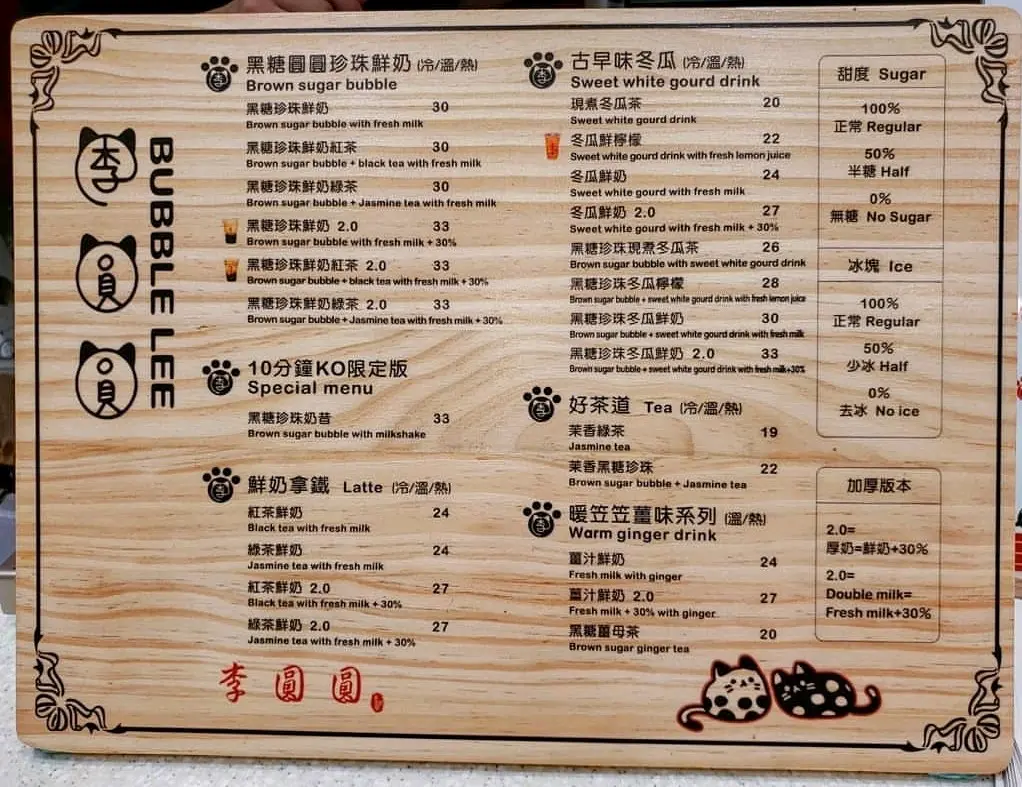 李
圓
圓
BUBBLE LEE
黑糖圓圓珍珠鮮奶 (冷/溫/熱)
Brown sugar bubble
黑糖珍珠鮮奶 30
Brown sugar bubble with fresh milk
黑糖珍珠鮮奶紅茶 30
Brown sugar bubble + black tea with fresh milk
黑糖珍珠鮮奶綠茶 30
Brown sugar bubble + Jasmine tea with fresh milk
黑糖珍珠鮮奶 2.0 33
Brown sugar bubble with fresh milk + 30%
黑糖珍珠鮮奶紅茶 2.0 33
Brown sugar bubble + black tea with fresh milk + 30%
黑糖珍珠鮮奶綠茶 2.0 33
Brown sugar bubble + Jasmine tea with fresh milk + 30%
10分鐘KO限定版
Special menu
黑糖珍珠奶昔 33
Brown sugar bubble with milkshake
鮮奶拿鐵 Latte (冷/溫/熱)
紅茶鮮奶 24
Black tea with fresh milk
綠茶鮮奶 24
Jasmine tea with fresh milk
紅茶鮮奶 2.0 27
Black tea with fresh milk + 30%
綠茶鮮奶 2.0 27
Jasmine tea with fresh milk + 30%
李圓圓
古早味冬瓜 (冷/溫/熱)
Sweet white gourd drink
現煮冬瓜茶 20
Sweet white gourd drink
冬瓜鮮檸檬 22
Sweet white gourd drink with fresh lemon juice
冬瓜鮮奶 24
Sweet white gourd with fresh milk
冬瓜鮮奶 2.0 27
Sweet white gourd with fresh milk + 30%
黑糖珍珠現煮冬瓜茶 26
Brown sugar bubble with sweet white gourd drink
黑糖珍珠冬瓜檸檬 28
Brown sugar bubble + sweet white gourd drink with fresh lemon juice
黑糖珍珠冬瓜鮮奶 30
Brown sugar bubble + sweet white gourd drink with fresh milk
黑糖珍珠冬瓜鮮奶 2.0 33
Brown sugar bubble + sweet white gourd drink with fresh milk+30%
好茶道 Tea (冷/溫/熱)
茉香綠茶 19
Jasmine tea
茉香黑糖珍珠 22
Brown sugar bubble + Jasmine tea
暖笠笠薑味系列 (溫/熱)
Warm ginger drink
薑汁鮮奶 24
Fresh milk with ginger
薑汁鮮奶 2.0 27
Fresh milk + 30% with ginger
黑糖薑母茶 20
Brown sugar ginger tea
甜度 Sugar
100%
正常 Regular
50%
半糖 Half
0%
無糖 No Sugar
冰塊 Ice
100%
正常 Regular
50%
少冰 Half
0%
去冰 No ice
加厚版本
2.0=
厚奶=鮮奶+30%
2.0=
Double milk=
Fresh milk+30%